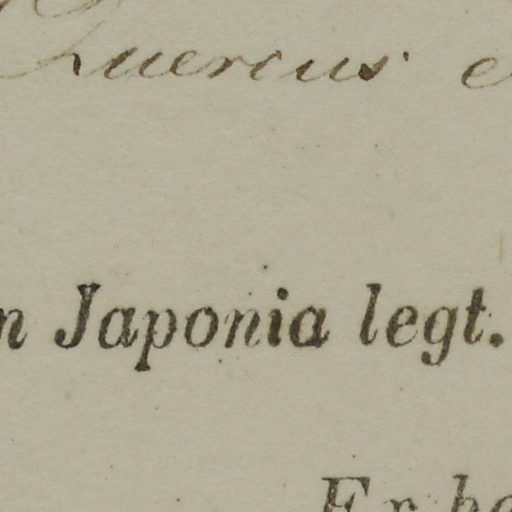 Quercus
n Japonia legt.
Er he